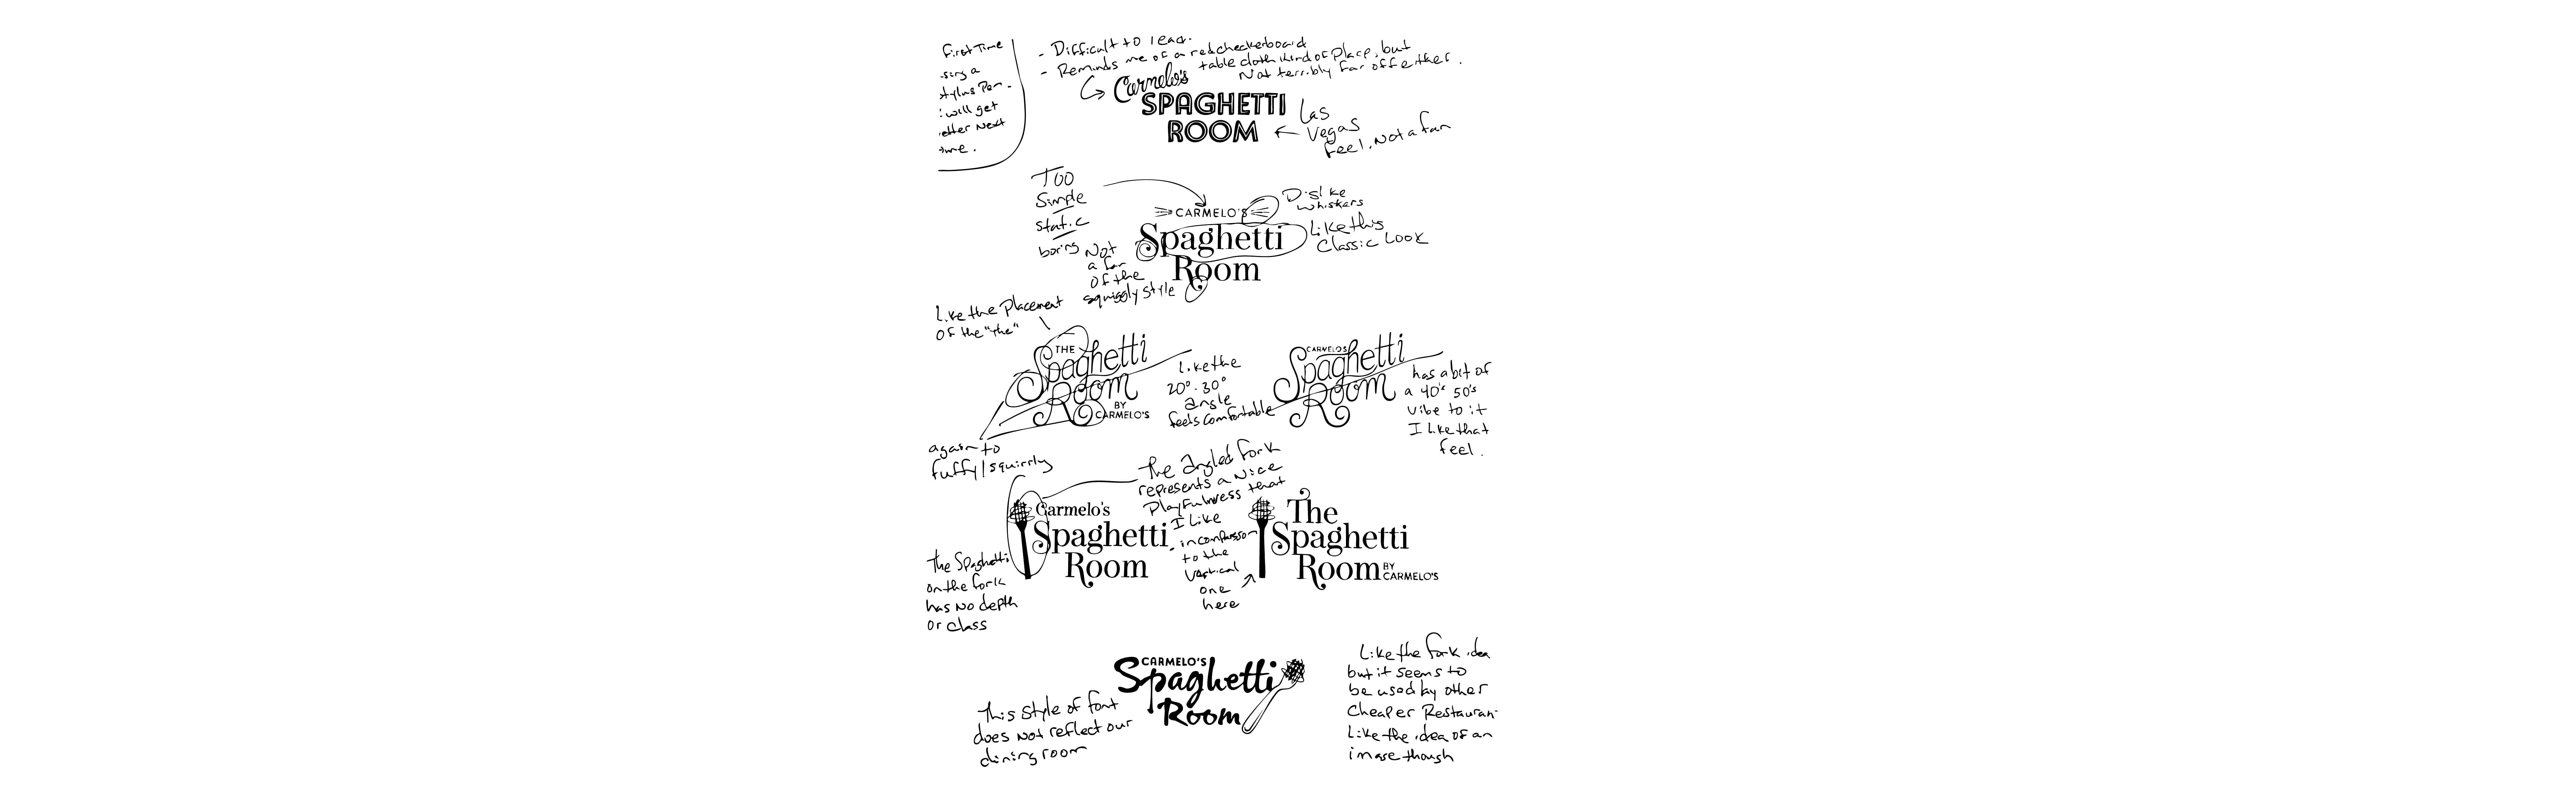 First Time
sing a
stylus Pen.
will get
etter Next
me.
- Difficult to read.
- Reminds me of a red checkerboard
table cloth kind of place, but
Not terribly far off either.
Carmelo's
SPAGHETTI
ROOM
Las
Vegas
Feel. Not a fan
Too
Simple
static
boring
CARMELO'S
Spaghetti
Room
Dislike
whiskers
Like this
Classic Look
Not
a fan
of the
squiggly style
Like the Placement
of the "the"
THE
Spaghetti
Room
BY
CARMELO'S
Like the
20°-30°
angle
feels comfortable
CARMELOS
Spaghetti
Room
has a bit of
a 40's 50's
vibe to it
I Like that
feel.
again to
fuffy/squirrly
The Angled Fork
represents a Nice
Playfulness that
I Like
- in comparison
to the
Vertical
one
here
Carmelo's
Spaghetti
Room
The
Spaghetti
Room BY
CARMELO'S
The Spaghetti
on the fork
has No depth
or class
CARMELO'S
Spaghetti
Room
This Style of font
does Not reflect our
dining room
Like the fork idea
but it seems to
be used by other
Cheaper Restauran
Like the idea of an
image though